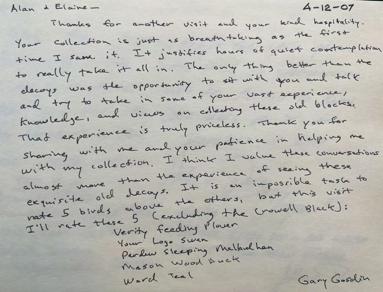 Alan & Elaine — 4-12-07
Thanks for another visit and your kind hospitality.
Your collection is just as breathtaking as the first
time I saw it. It justifies hours of quiet contemplation
to really take it all in. The only thing better than the
decoys was the opportunity to sit with you and talk
and try to take in some of your vast experience,
knowledge, and views on collecting these old blocks.
That experience is truly priceless. Thank you for
sharing with me and your patience in helping me
with my collection. I think I value these conversations
almost more than the experience of seeing these
exquisite old decoys. It is an impossible task to
rate 5 birds above the others, but this visit
I'll rate these 5 (excluding the Crowell Black):
Verity feeding Plover
Your Logo Swan
Perdew Sleeping Mallard hen
Mason Wood Duck
Ward Teal
Gary